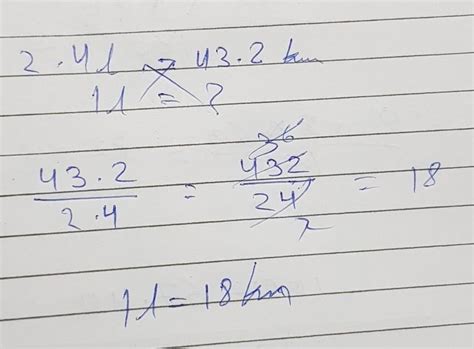 2.4l → 43.2 km
1l = ?
43.2 / 2.4 = 432 / 24 = 18
36
2
1l = 18 km